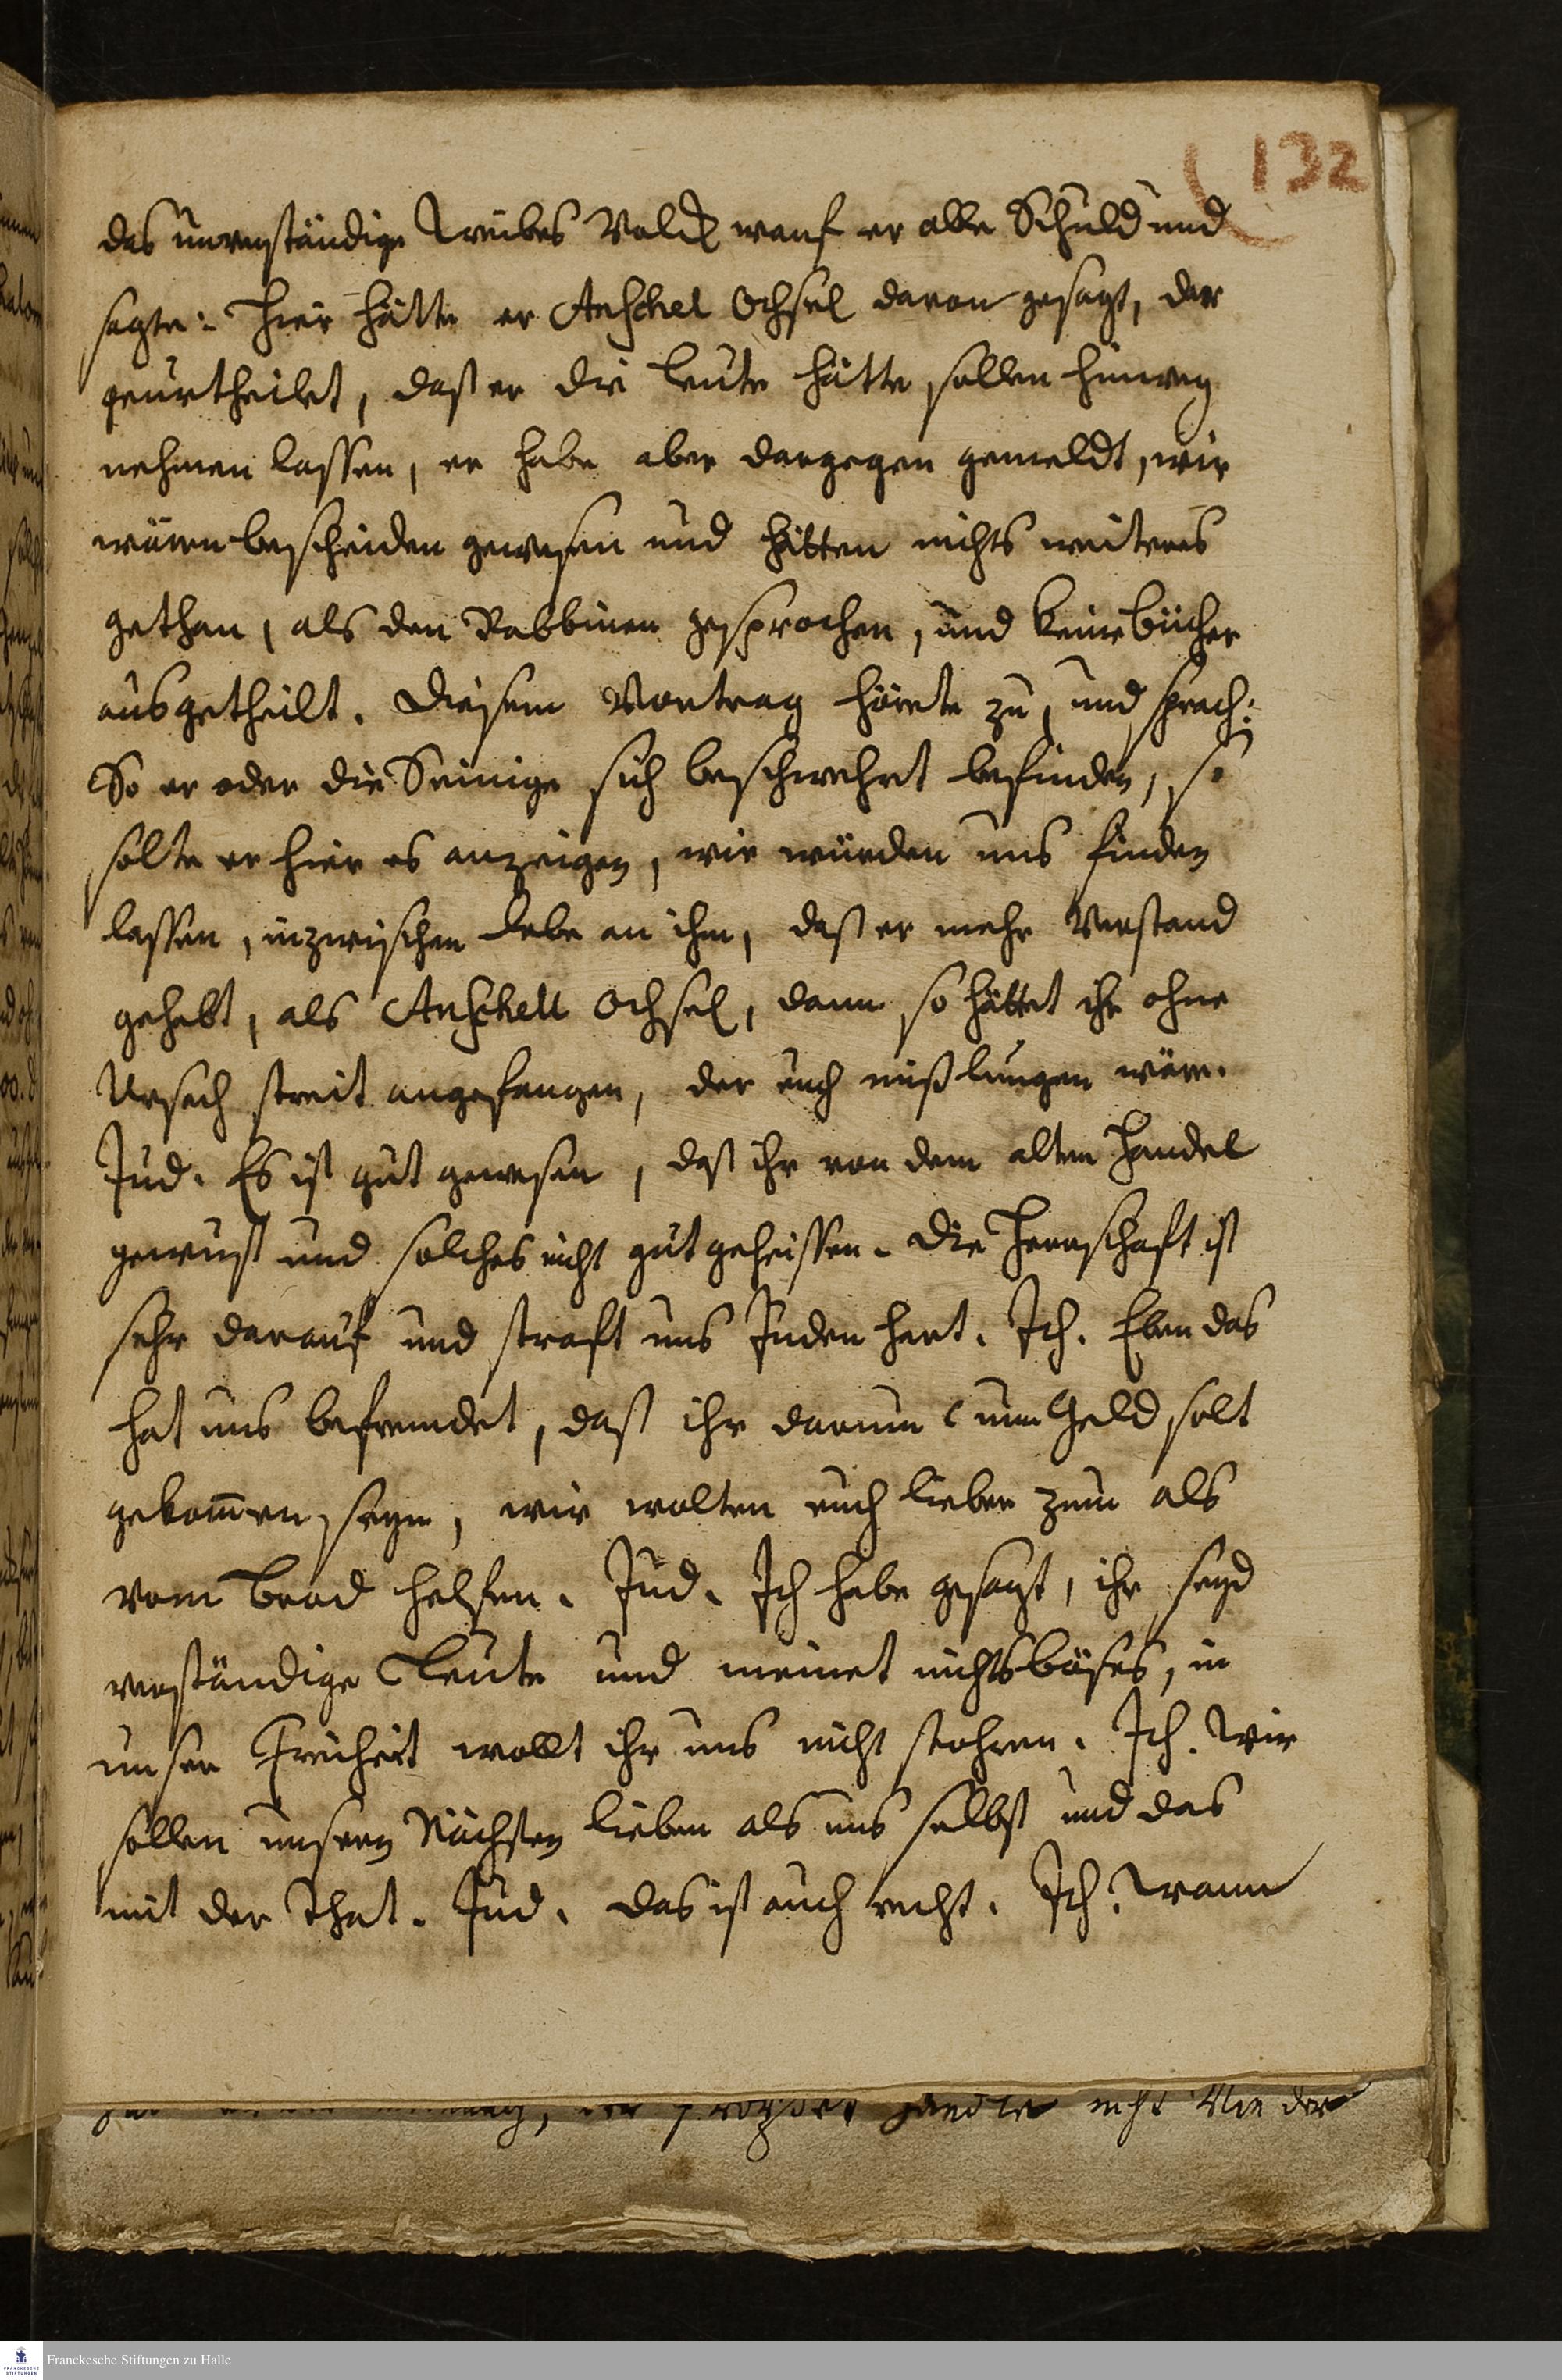 132
das unverständige Weibes Volck warf er alle Schuld und
sagte: Hier hätte er Anschel Ochsel davon gesagt, der
geurtheilet, daß er die Leute hätte sollen hinweg
nehmen lassen, er habe aber dargegen gemeldt, wir
wären bescheiden gewesen und hätten nichts weiteres
gethan, als den Rabbinen gesprochen, und keine bücher
ausgetheilt. Diesem Vortrag hörete zu, und sprach:
So er oder die Seinige sich beschwehrt befinden, so
solte er hier es anzeigen, wir würden uns finden
lassen, inzwischen lobe an ihm, daß er mehr Verstand
gehabt, als Anschell Ochsel, dann so hättet ihr ohne
Ursach streit angefangen, der euch mißlungen wäre.
Jud. Es ist gut gewesen, daß ihr von dem alten Handel
gewust und solches nicht gut geheissen. Die Herrschaft ist
sehr darauf und straft uns Juden hart. Ich. Eben das
hat uns befremdet, daß ihr darum um Geld solt
gekom̄en seyn, wir wolten euch lieber zum als
vom Brod helfen. Jud. Ich habe gesagt, ihr seyd
verständige Leute und meinet nichts böses, in
unser Freiheit wollt ihr uns nicht stohren. Ich. Wir
sollen unsern Nächsten lieben als uns selbst und das
mit der That. Jud. Das ist auch recht. Ich. Wann
nicht Wieder
Franckesche Stiftungen zu Halle